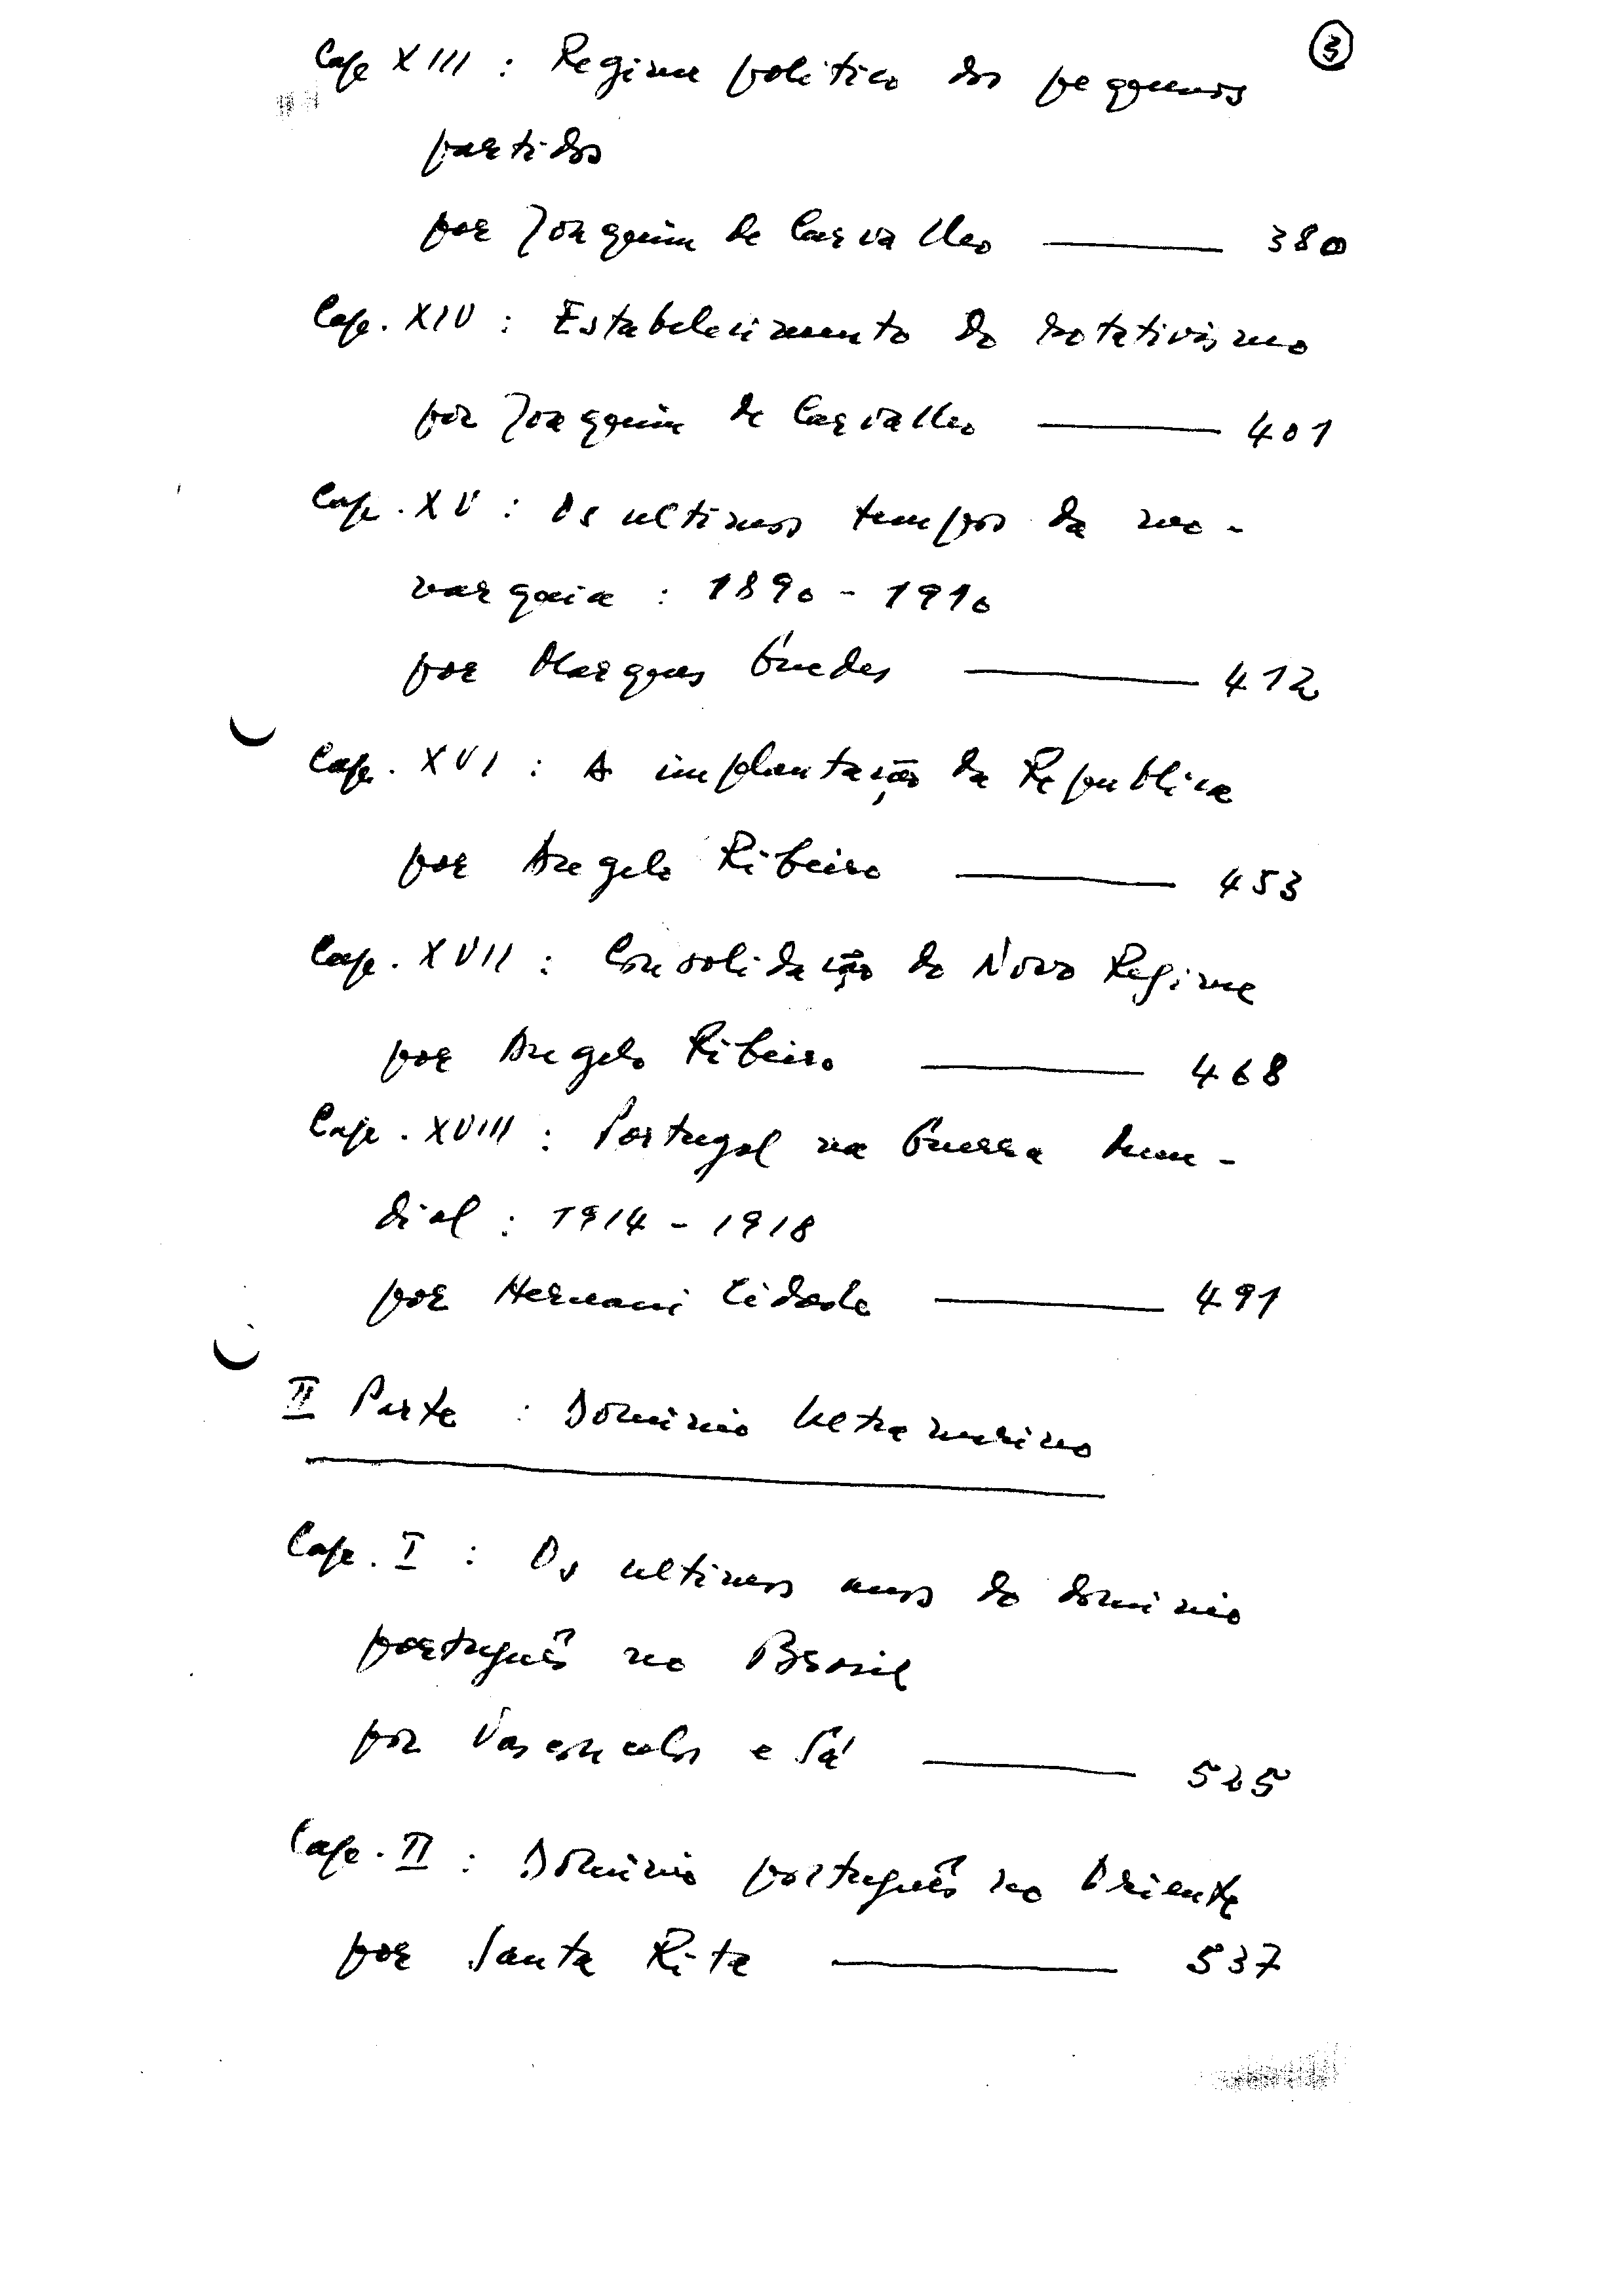 3
Cap XIII : Regime politico dos pequenos
partidos
por Joaquim de Carvalho — 380
Cap. XIV : Estabelecimento do rotativismo
por Joaquim de Carvalho — 401
Cap. XV : Os ultimos tempos da mo-
narquia : 1890 - 1910
por Marques Guedes — 412
Cap. XVI : A implantação da Republica
por Angelo Ribeiro — 453
Cap. XVII : Consolidação do Novo Regime
por Angelo Ribeiro — 468
Cap. XVIII : Portugal na Guerra Mun-
dial : 1914 - 1918
por Hernani Cidade — 491
II Parte : Dominio Ultramarino
Cap. I : Os ultimos anos do dominio
português no Brasil
por Vasconcelos e Sá — 525
Cap. II : Dominio português no Oriente
por Santa Rita — 537